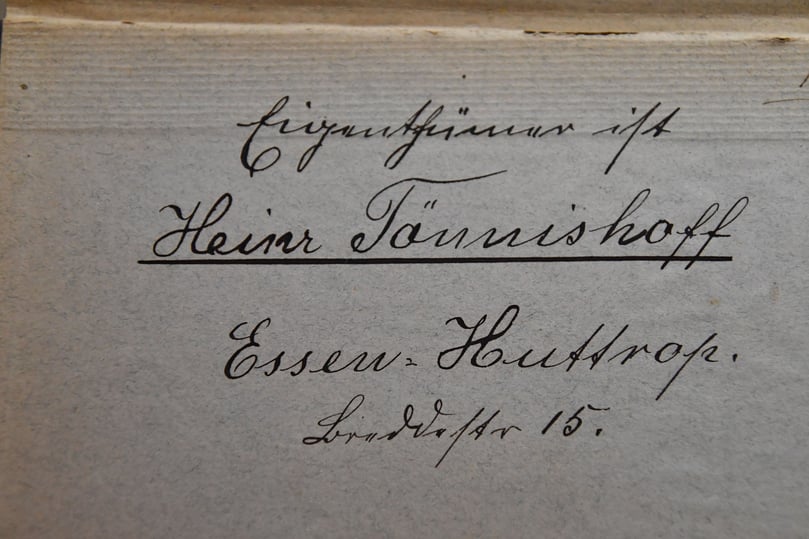 Eigenthümer ist
Heinr Tönnishoff
Essen-Huttrop.
Breddestr 15.